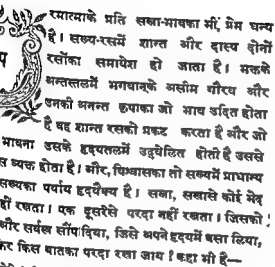 रमात्माके प्रति सखा-भावका भी, प्रेम धन्य
है। सख्य-रसमें शान्त और दास्य दोनों
रसोंका समावेश हो जाता है। भक्तके
अन्तस्तलमें भगवान्‌के असीम गौरव और
उनकी अनन्त कृपाका जो भाव उदित होता
है वह शान्त रसको प्रकट करता है और जो
भावना उसके हृदयतलमें उद्वेलित होती है उससे
स व्यक्त होता है। और, विश्वासका तो सख्यमें प्राधान्य
सख्यका पर्याय हृदयैक्य है। सखा, सखासे कोई भेद
हीं रखता। एक दूसरेसे परदा नहीं रखता। जिसको
और सर्वस्व सौंप दिया, जिसे अपने हृदयमें बसा लिया,
फेर किस बातका परदा रखा जाय? कहा भी है—